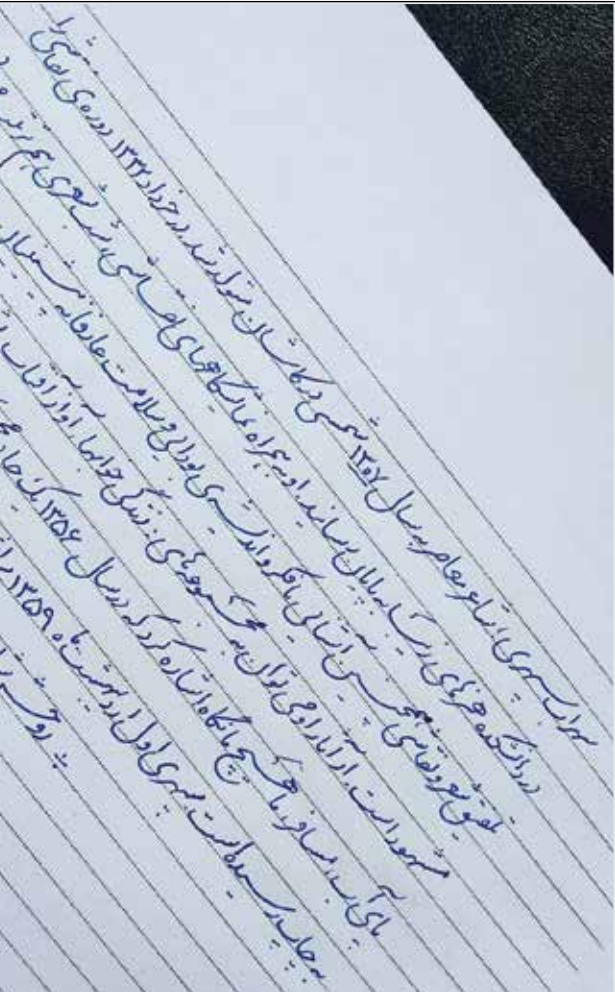 سهراب سپهری شاعر معاصر به سال ۱۳۰۷ شمسی در کاشان متولد شد. در خرداد ۱۳۳۲ دوره‌ی نقاشی را
در دانشکده هنرهای زیبا به پایان رسانید. او به همراه نمایشگاههای نقاشی، شعری هم
تلفیق شعر و نقاشی همچنین آشنایی با فکر و اندیشه‌ی بودایی و سلامت عارفانه
مشهور است. از آثار او می توان به مجموعه‌های: زندگی خوابها، آواز آفتاب،
پای آب، مسافر، ما هیچ ما نگاه اشاره کرد که در سال ۱۳۵۶ یک جا
به چاپ رسیده است. سپهری اول اردیبهشت ماه ۱۳۵۹